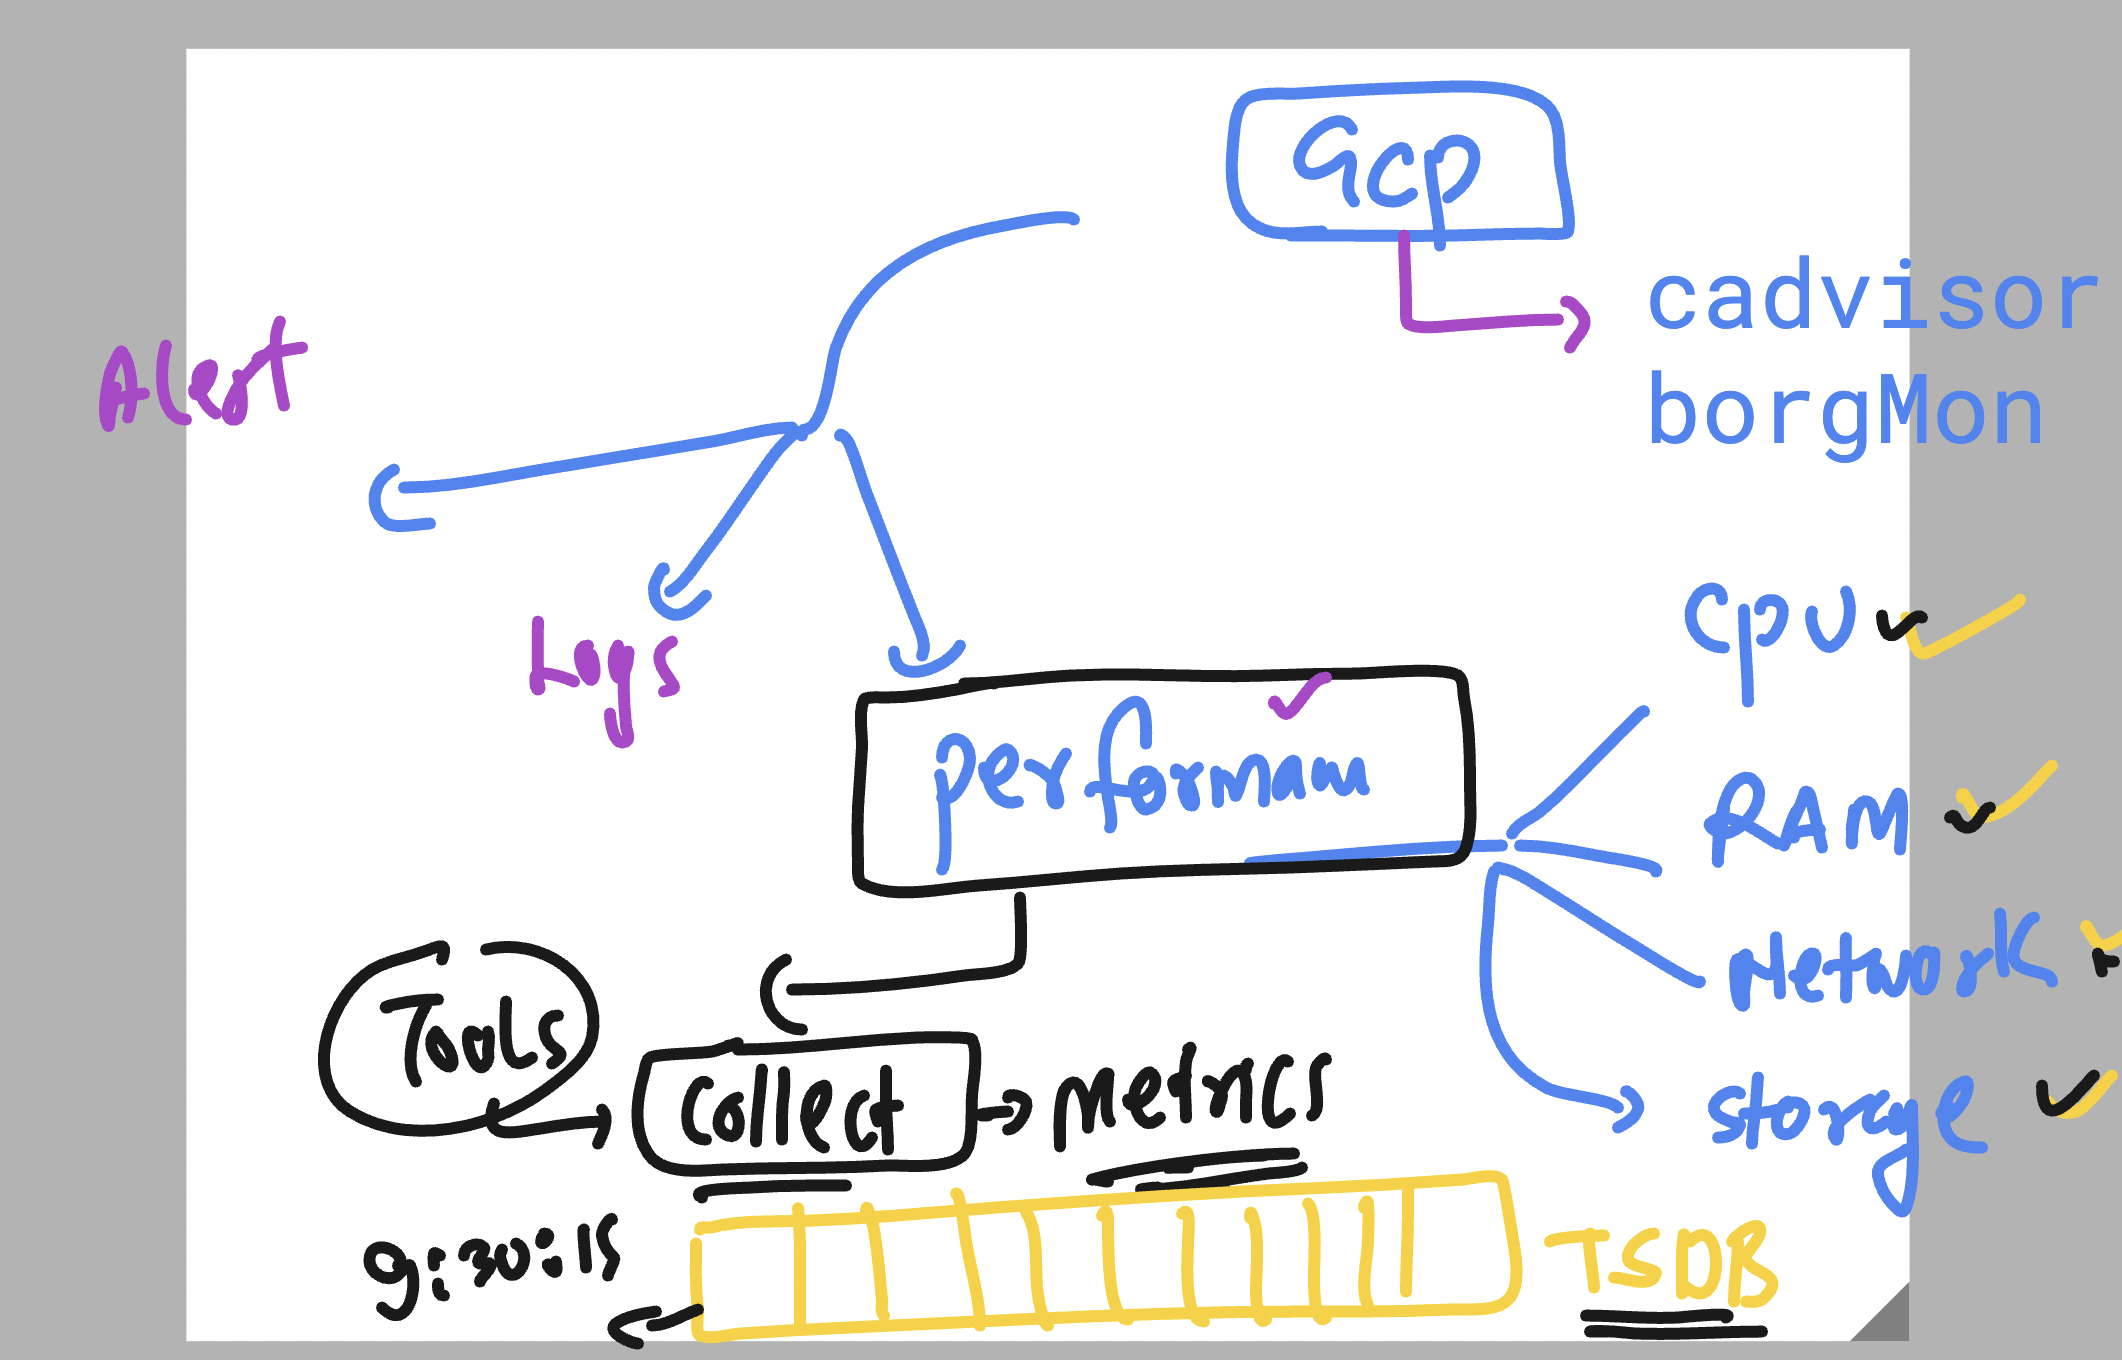 Gcp
cadvisor
borgMon
Alert
Logs
performam
CpU
RAM
Network
storage
Tools
Collect
Metrics
9:30:15
TSDB